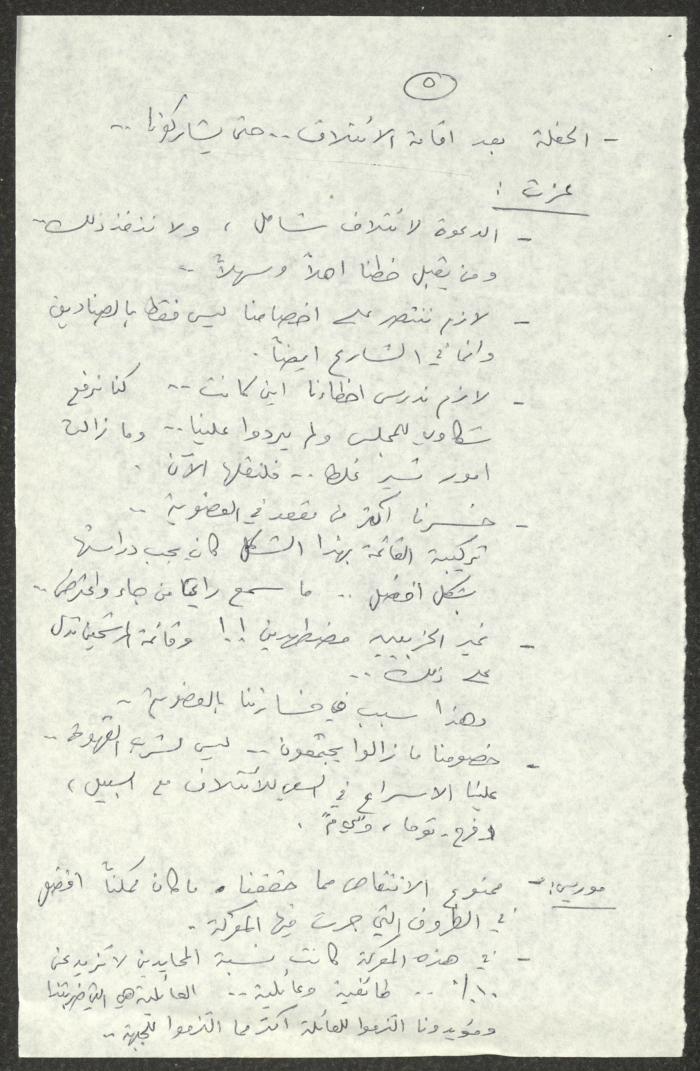 ٥
- الحفلة بعد اقامة الائتلاف .. حتى يشاركونا ..
عزت :
- الدعوة لائتلاف شامل ، ولا ننفذ ذلك ..
ومن يقبل خطنا اهلاً وسهلاً ..
- لازم ننتصر على اخصامنا ليس فقط بالصناديق
وانما في الشارع ايضاً .
- لازم ندرس اخطاءنا اين كانت .. كنا نرفع
شكاوى للمجلس ولم يردوا علينا .. وما زالت
امور تسير غلط .. فلنقلها الآن .
- خسرنا اكثر من مقعد في العضوية ..
تركيبة القائمة بهذا الشكل كان يجب دراستها
بشكل افضل .. ما سمع رأينا من جاء واعترض ..
- غير الحزبيين مضطهدين !! وقائمة المرشحين تدل
على ذلك ..
وهذا سبب في خسارتنا بالعضوية ..
- خصومنا ما زالوا يجتمعون .. ليس لشرب القهوة ..
علينا الاسراع في السعي للائتلاف مع اسبيل ،
فرح - توما ،
موريس : - ممنوع الانتقاص مما حققنا . ما كان ممكناً افضل
في الظروف التي جرت فيها المعركة .
- في هذه المعركة كانت نسبة المحايدين لا تزيد عن
١٠٪ .. طائفية وعائلية .. العائلية هي التي ضربتنا
ومؤيدونا التزموا للعائلة اكثر مما التزموا للجبهة ..